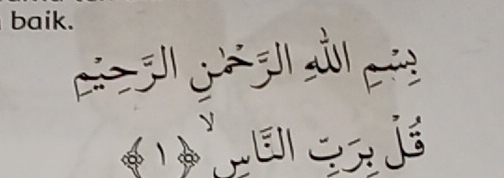 baik.
بِسْمِ اللهِ الرَّحْمٰنِ الرَّحِيْمِ
قُلْ بِرَبِّ النَّاسِۙ ﴿١﴾